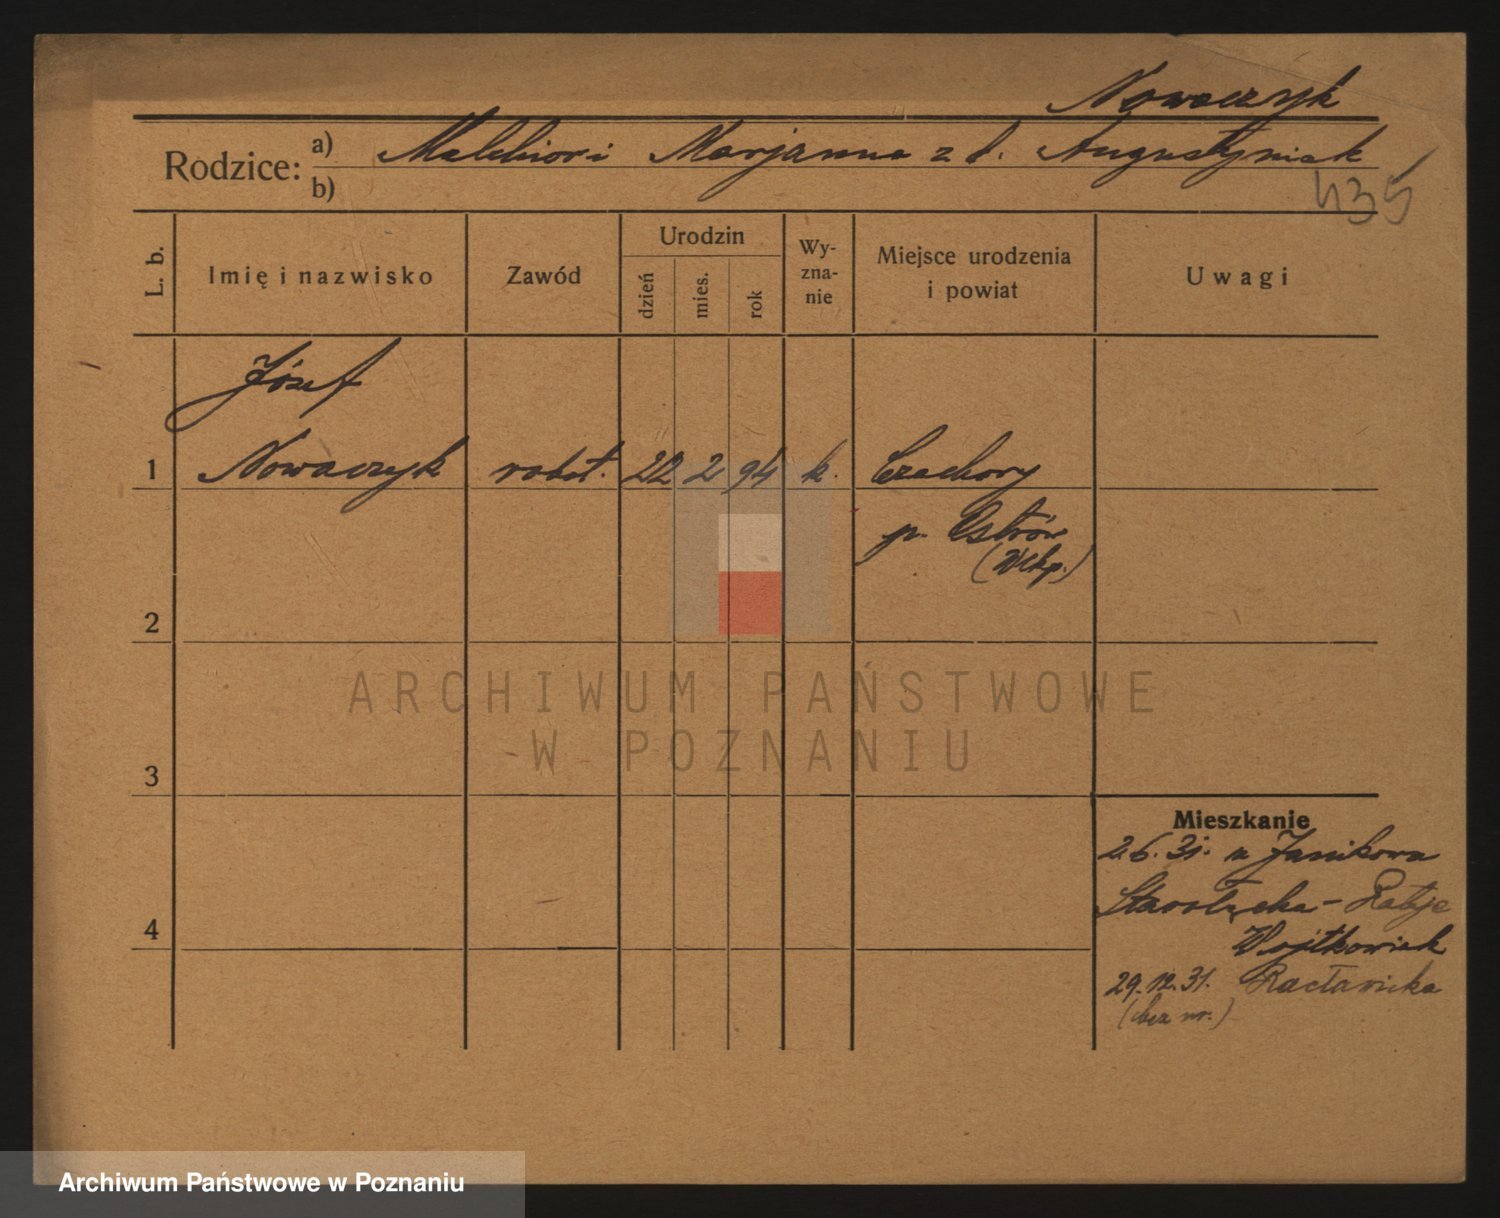 Nowaczyk
Rodzice: a) Melchior i Marjanna z d. Augustyniak
b)
435
L. b.
Imię i nazwisko
Zawód
Urodzin
dzień
mies.
rok
Wy-
zna-
nie
Miejsce urodzenia
i powiat
Uwagi
Józef
1 Nowaczyk robot. 22 2 94 k. Czachory
p. Ostrów
(Wlkp.)
2
ARCHIWUM PAŃSTWOWE
W POZNANIU
3
Mieszkanie
2.6.31. z Janikowa
Starołęcka - Rataje
4 Wojtkowiak
29.12.31. Racławicka
(bez nr.)
Archiwum Państwowe w Poznaniu